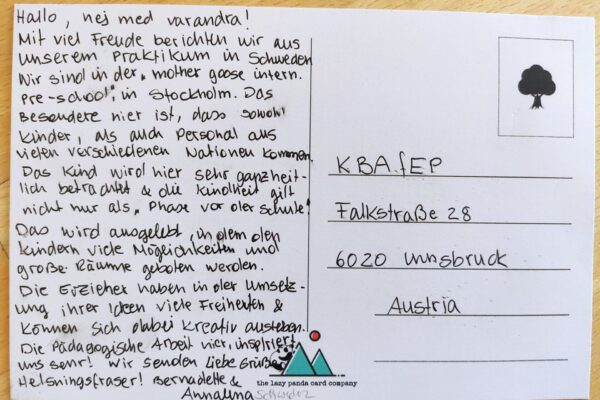 Hallo, hej med varandra!
Mit viel Freude berichten wir aus
unserem Praktikum in Schweden
Wir sind in der „mother goose intern.
pre-school" in Stockholm. Das
Besondere hier ist, dass sowohl
Kinder, als auch Personal aus
vielen verschiedenen Nationen kommen.
Das Kind wird hier sehr ganzheit-
lich betrachtet & die Kindheit gilt
nicht nur als „Phase vor der Schule".
Das wird ausgelebt, indem den
Kindern viele Möglichkeiten und
große Räume geboten werden.
Die Erzieher haben in der Umsetz-
ung ihrer Ideen viele Freiheiten &
können sich dabei kreativ ausleben.
Die Pädagogische Arbeit hier, inspiriert
uns sehr! Wir senden Liebe Grüße
Helsningsfraser! Bernadette &
Annalina
KBAfEP
Falkstraße 28
6020 Innsbruck
Austria
the lazy panda card company